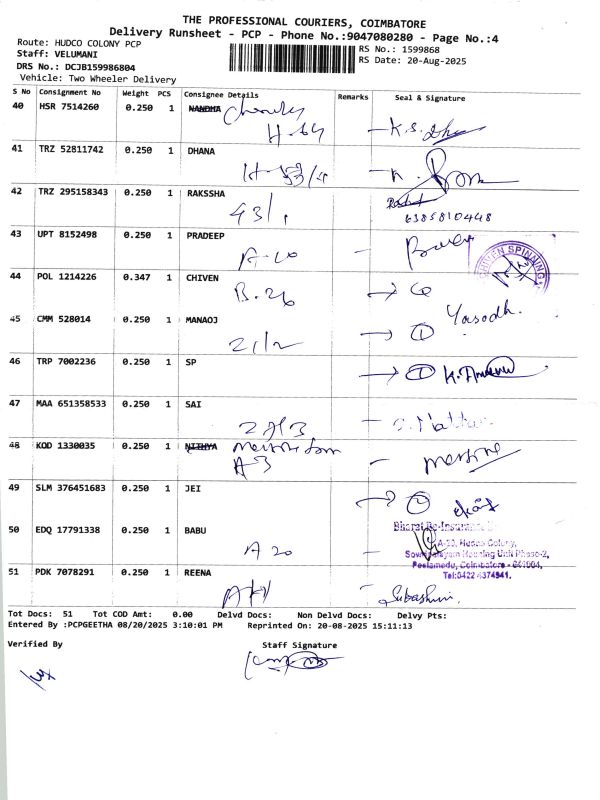 THE PROFESSIONAL COURIERS, COIMBATORE
Delivery Runsheet - PCP - Phone No.:9047080280 - Page No.:4
Route: HUDCO COLONY PCP
Staff: VELUMANI
DRS No.: DCJB159986804
Vehicle: Two Wheeler Delivery
RS No.: 1599868
RS Date: 20-Aug-2025
S No Consignment No Weight PCS Consignee Details Remarks Seal & Signature
40 HSR 7514260 0.250 1 NANDHA
H-64
41 TRZ 52811742 0.250 1 DHANA
42 TRZ 295158343 0.250 1 RAKSSHA
43/1
6385810448
43 UPT 8152498 0.250 1 PRADEEP
A-20
44 POL 1214226 0.347 1 CHIVEN
B.26
CHIVEN SPINNING
45 CMM 528014 0.250 1 MANAOJ
21/2
Yasodh.
46 TRP 7002236 0.250 1 SP
47 MAA 651358533 0.250 1 SAI
48 KOD 1330035 0.250 1 NITHYA
A-3
49 SLM 376451683 0.250 1 JEI
50 EDQ 17791338 0.250 1 BABU
A 20
A-20, Hudco Colony,
Sowripalayam Housing Unit Phase-2,
Peelamedu, Coimbatore - 641004,
51 PDK 7078291 0.250 1 REENA
Subashini.
Tot Docs: 51 Tot COD Amt: 0.00 Delvd Docs: Non Delvd Docs: Delvy Pts:
Entered By :PCPGEETHA 08/20/2025 3:10:01 PM Reprinted On: 20-08-2025 15:11:13
Verified By Staff Signature